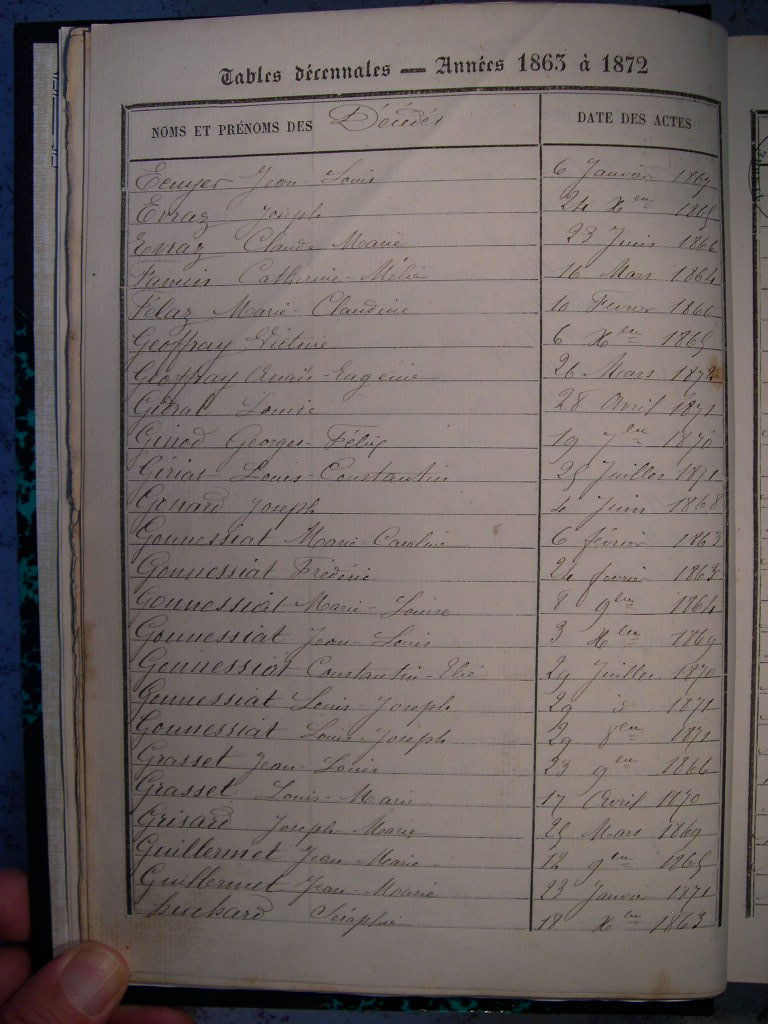 Tables décennales — Années 1863 à 1872
NOMS ET PRÉNOMS DES Décédés DATE DES ACTES
Ecuyer Jean Louis 6 Janvier 1867
Evraz Joseph 24 Xbre 1865
Evraz Claude Marie 23 Juin 1866
Catherine-Mélie 16 Mars 1864
Félaz Marie-Claudine 10 Fevrier 1866
Geoffray Victorie 6 Xbre 1865
Geoffray Anaïs-Eugénie 26 Mars 1872
Louise 28 Avril 1871
Ginod Georges-Félix 19 7bre 1870
Louis-Constantin 25 Juillet 1871
Gonard Joseph 4 Juin 1868
Gounessiat Marie-Caroline 6 février 1863
Gounessiat Frédéric 24 fevrier 1863
Gounessiat Marie-Louise 8 9bre 1864
Gounessiat Jean-Louis 3 Xbre 1869
Gounessiat Constantin-Elie 29 Juillet 1870
Gounessiat Louis-Joseph 29 id 1871
Gounessiat Louis-Joseph 29 8bre 1871
Grasset Jean-Louis 23 9bre 1866
Grasset Louis-Marie 17 Avril 1870
Grisard Joseph-Marie 25 Mars 1869
Guillermet Jean-Marie 12 9bre 1865
Guillermet Jean-Marie 23 Janvier 1871
Huchard Séraphie 18 Xbre 1863